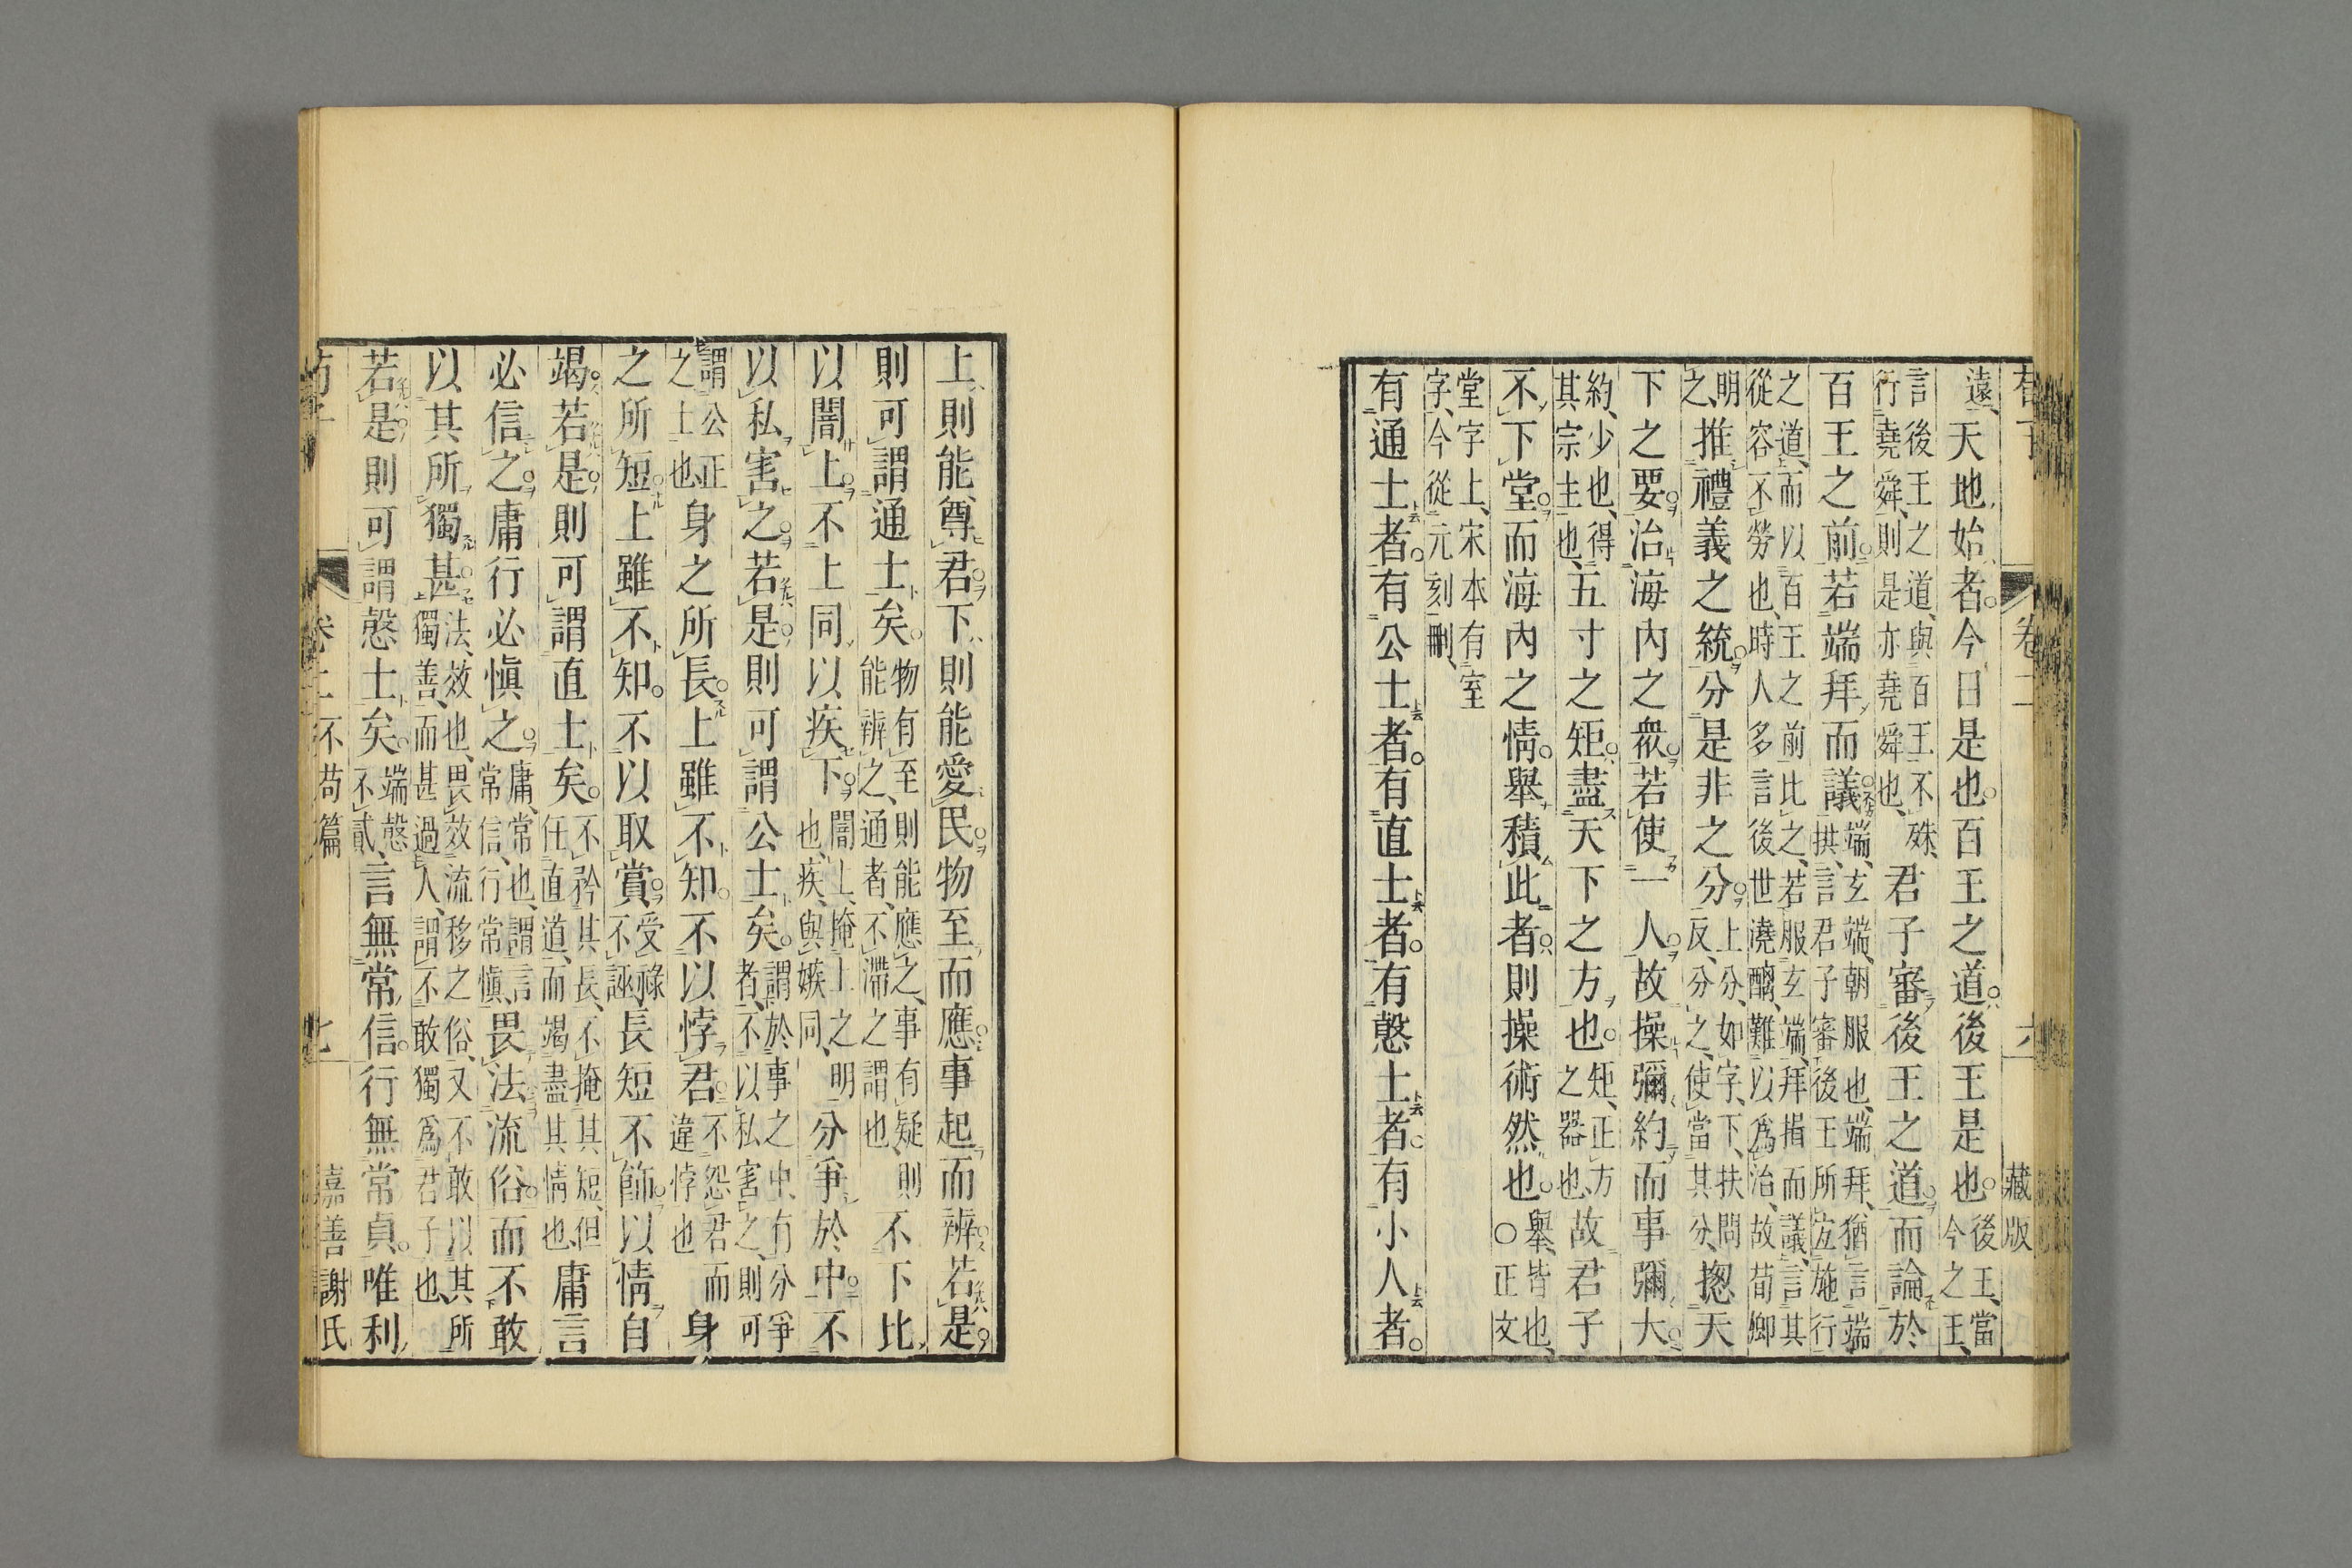 荀子 卷二 六 藏版
遠、天地始者。今日是也。百王之道。後王是也。後王、當今之王、
言後王之道、與百王不殊、行堯舜、則是亦堯舜也、君子審後王之道。而論於
百王之前。若端拜而議。端、玄端、朝服也、端拜、猶言端拱、言君子審後王所宜施行
之道、而以百王之前比之、若服玄端、拜揖而議、言其從容不勞也、時人多言後世澆醨、難以爲治、故荀卿
明之、推禮義之統。分是非之分。上分、如字、下、扶問反、分之、使當其分、揔天
下之要。治海內之衆。若使一人。故操彌約而事彌大。
約、少也、得其宗主也、五寸之矩。盡天下之方也。矩、正方之器也、故君子
不下堂。而海內之情。舉積此者。則操術然也。舉、皆也、○正文
堂字上、宋本有室字、今從元刻刪、
有通士者。有公士者。有直士者。有愨士者。有小人者。
上則能尊君。下則能愛民。物至而應。事起而辨。若是。
則可謂通士矣。物有至則能應之、事有疑、則能辨之、通者、不滯之謂也、不下比
以闇上。不上同以疾下。闇上、掩上之明也、疾、與嫉同、分爭於中。不
以私害之。若是。則可謂公士矣。謂於事之中、有分爭者、不以私害之、則可
謂公正之士也身之所長。上雖不知。不以悖君。不怨君而違悖也身
之所短。上雖不知。不以取賞。受祿不誣、長短不飾。以情自
竭。若是。則可謂直士矣。不矜其長、不掩其短、但任直道、而竭盡其情也、庸言
必信之。庸行必愼之。庸、常也、謂言常信、行常愼、畏法流俗。而不敢
以其所獨甚。法、效也、畏效流移之俗、又不敢以其所獨善、而甚過人、謂不敢獨爲君子也、
若是。則可謂愨士矣。端愨不貳、言無常信。行無常貞。唯利
荀子 卷二 不苟篇 七 嘉善謝氏